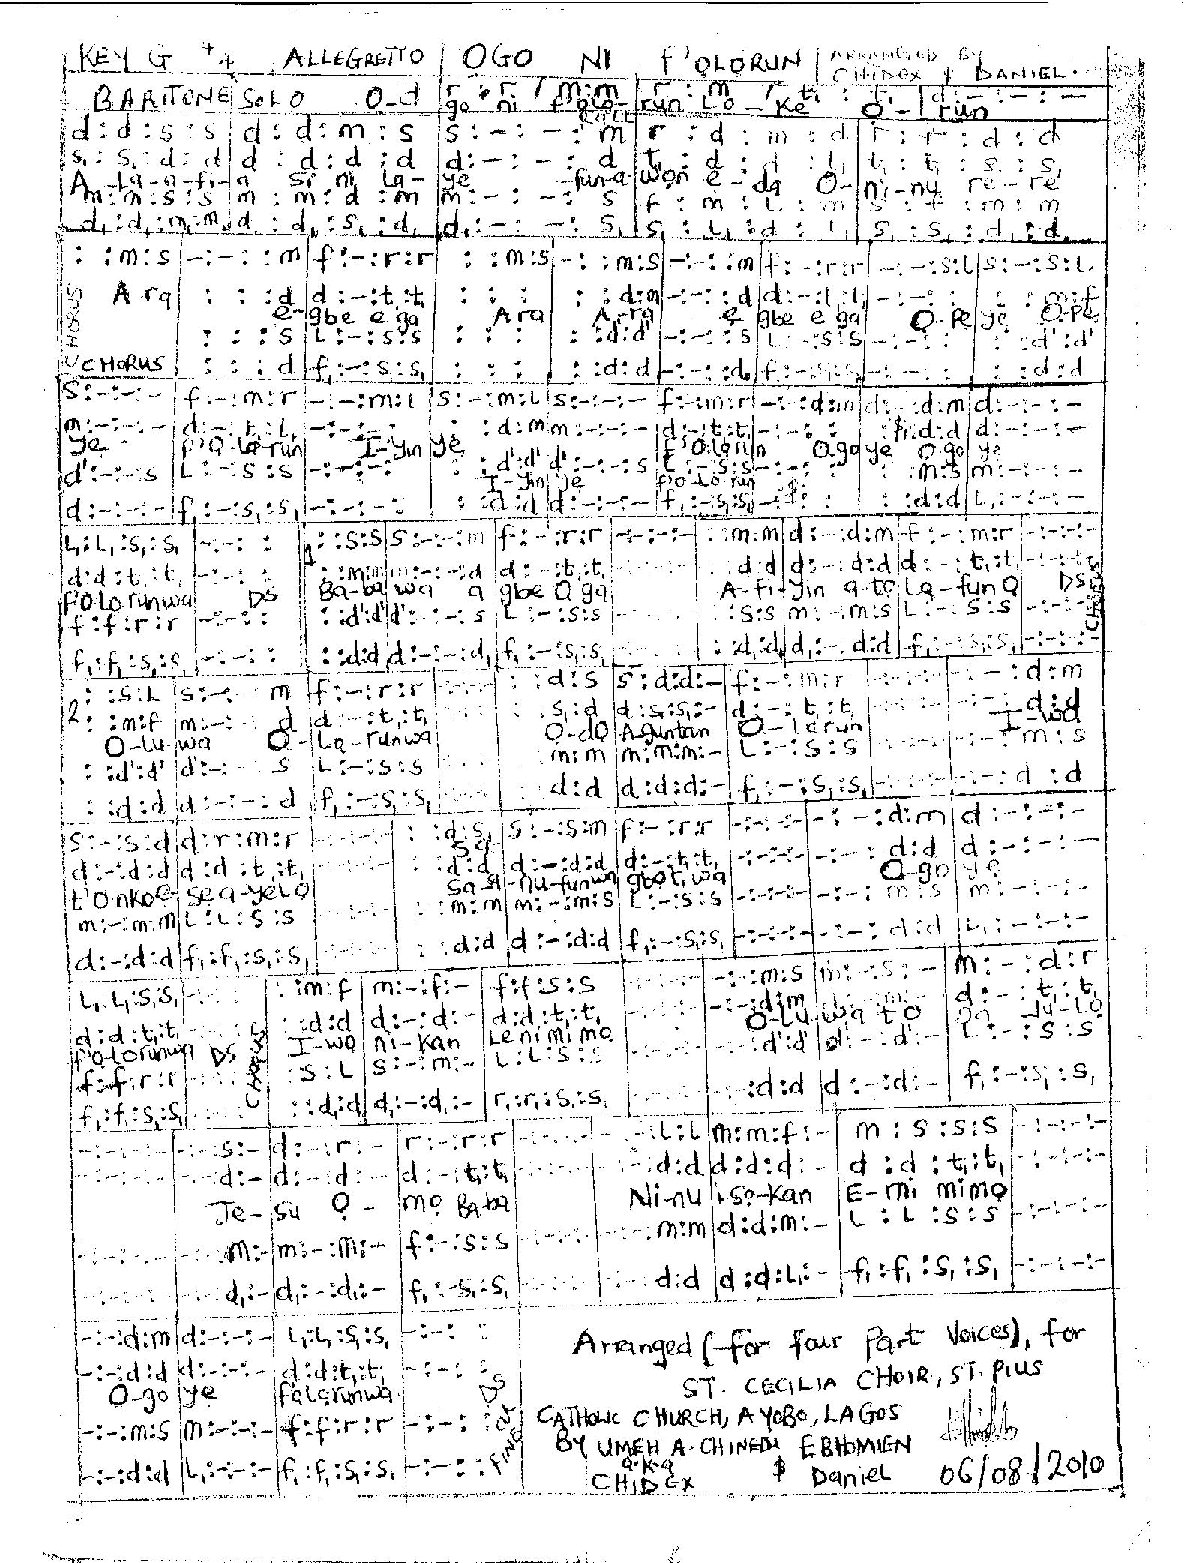 KEY G 4/4 ALLEGRETTO OGO NI F'OLORUN ARRANGED BY CHIDEX & DANIEL.
BARITONE SOLO O-d
go ni f'olo-run Lo - Ke O - run
d : d : s : s d : d : m : s s : - : - : m r : d : m : d r : r : d : d
s, : s, : d : d d : d : d : d d : - : - : d t, : d : d : l, t, : t, : s, : s,
A -la-a-fi-a si ni la- ye fun-a won e - da O- ni-nu re-re
m : m : s : s m : m : d : m m : - : - : s f : m : L : m s : f : m : m
d, : d, : m, : m, d : d, : s, : d, d, : - : - : s, s, : L, : d : l, s, : s, : d, : d,
: : m : s - : - : : m f : - : r : r : : m : s - : : m : s - : - : : m f : - : r : r - : - : s : L s : - : s : L
A ra : : : d d : - : t, : t, : : : : : d : m - : - : : d d : - : t, : t, - : - : - : : m : f
e- gbe e ga A ra A-ra e gbe e ga O-pe ye O-pe
: : : s L : - : s : s : : : : : d' : d' - : - : - : s L : - : s : s - : - : - : : d' : d'
CHORUS
CHORUS : : : d f, : - : s, : s, : : : : : d : d - : - : - : d, f, : - : s, : s, - : - : - : : d : d
s : - : - : - f : - : m : r - : - : m : L s : - : m : L s : - : - : - f : - : m : r - : - : d : m d : - : d : m d : - : - : -
ye f'O-lo-run I-yin ye f'Olorun Ogo ye Ogo ye
d' : - : - : s L : - : s : s - : - : - : - : d' : d' d' : - : - : s L : - : s : s : : m : s m : - : - : -
I-yin ye f'olorun
d : - : - : - f, : - : s, : s, - : - : - : - : : d : d d : - : - : - f, : - : s, : s, : : d : d L, : - : - : -
L, : L, : s, : s, - : - : : 1 : : s : s s : - : - : m f : - : r : r - : - : - : - : : m : m d : - : d : m f : - : m : r - : - : - : -
d : d : t, : t, - : - : : : : m : m m : - : - : d d : - : t, : t, : : d : d d : - : d : d d : - : t, : t, - : - : - : -
folorunwa DS Ba-ba wa a gbe O ga A-fi-yin a-to la-fun O DS CHORUS
f : f : r : r - : - : : : : d' : d' d' : - : - : s L : - : s : s : s : s m : - : m : s L : - : s : s - : - : - : -
f, : f, : s, : s, - : - : : : : d : d d : - : - : d, f, : - : s, : s, : : d, : d, d, : - : d : d f, : - : s, : s, - : - : - : -
2. : : s : L s : - : m f : - : r : r : : d : s s : d : d : - f : - : m : r - : d : m
: : m : f m : - : d d : - : t, : t, : s, : d d : s, : s, : - d : - : t, : t, - : d : d
O-lu-wa O- Lo-runwa O-do Aguntan O-lorun I-wo
: : d' : d' d' : - : s L : - : s : s m : m m : m : m : - L : - : s : s - : m : s
: : d : d d : - : - : d f, : - : s, : s, d : d d : d : d : - f, : - : s, : s, - : - : d : d
s : - : s : d d : r : m : r : : d : s, s : - : s : m f : - : r : r - : - : - : - - : - : d : m d : - : - : -
d : - : d : d d : d : t, : t, : : d : d d : - : d : d d : - : t, : t, - : - : - : - - : - : d : d d : - : - : -
t'Onkoe- se a-yelo Sa si-nu-funwa gbotiwa O-go ye
m : - : m : m L : L : s : s : : m : m m : - : m : s L : - : s : s - : - : - : - - : - : m : s m : - : - : -
d : - : d : d f, : f, : s, : s, : : d : d d : - : d : d f, : - : s, : s, - : - : - : - - : - : d : d L, : - : - : -
L, : L, : s, : s, : : m : f m : - : f : - f : f : s : s - : - : m : s m : - : s : - m : - : d : r
d : d : t, : t, : : d : d d : - : d : - d : d : t, : t, - : - : d : m d : - : t, : t,
f'olorunwa DS CHORUS I-wo ni-kan Lenimimo O-lu-wa to ga Ju-lo
f : f : r : r : s : L s : - : m : - L : L : s : s : d' : d' d' : - : d' : - L : - : s : s
f, : f, : s, : s, : : d, : d, d, : - : d, : - r, : r, : s, : s, : d : d d : - : d : - f, : - : s, : s,
- : - : - : - - : - : s : - d : - : r : - r : - : r : r - : L : L m : m : f : - m : s : s : s - : - : - : -
- : - : - : - - : - : d : - d : - : d : - d : - : t, : t, - : d : d d : d : d : - d : d : t, : t, - : - : - : -
Je- su O - mo Baba Ni-nu iso-kan E-mi mimo
- : - : - : - m : - m : - : m : - f : - : s : s - : m : m d : d : m : - L : L : s : s - : - : - : -
- : - : - : - d, : - d, : - : d, : - f, : - : s, : s, - : d : d d : d : L, : - f, : f, : s, : s, - : - : - : -
- : - : d : m d : - : - : - L, : L, : s, : s, - : - : :
- : - : d : d d : - : - : - d : d : t, : t, - : - : :
O-go ye folorunwa DS or FINE
- : - : m : s m : - : - : - f : f : r : r - : - : :
- : - : d : d L, : - : - : - f, : f, : s, : s, - : - : :
Arranged (for four Part Voices), for
ST. CECILIA CHOIR, ST. PIUS
CATHOLIC CHURCH, AYOBO, LAGOS
BY UMEH A. CHINEDU EBHOMIEN
a.k.a
CHIDEX & Daniel 06/08/2010